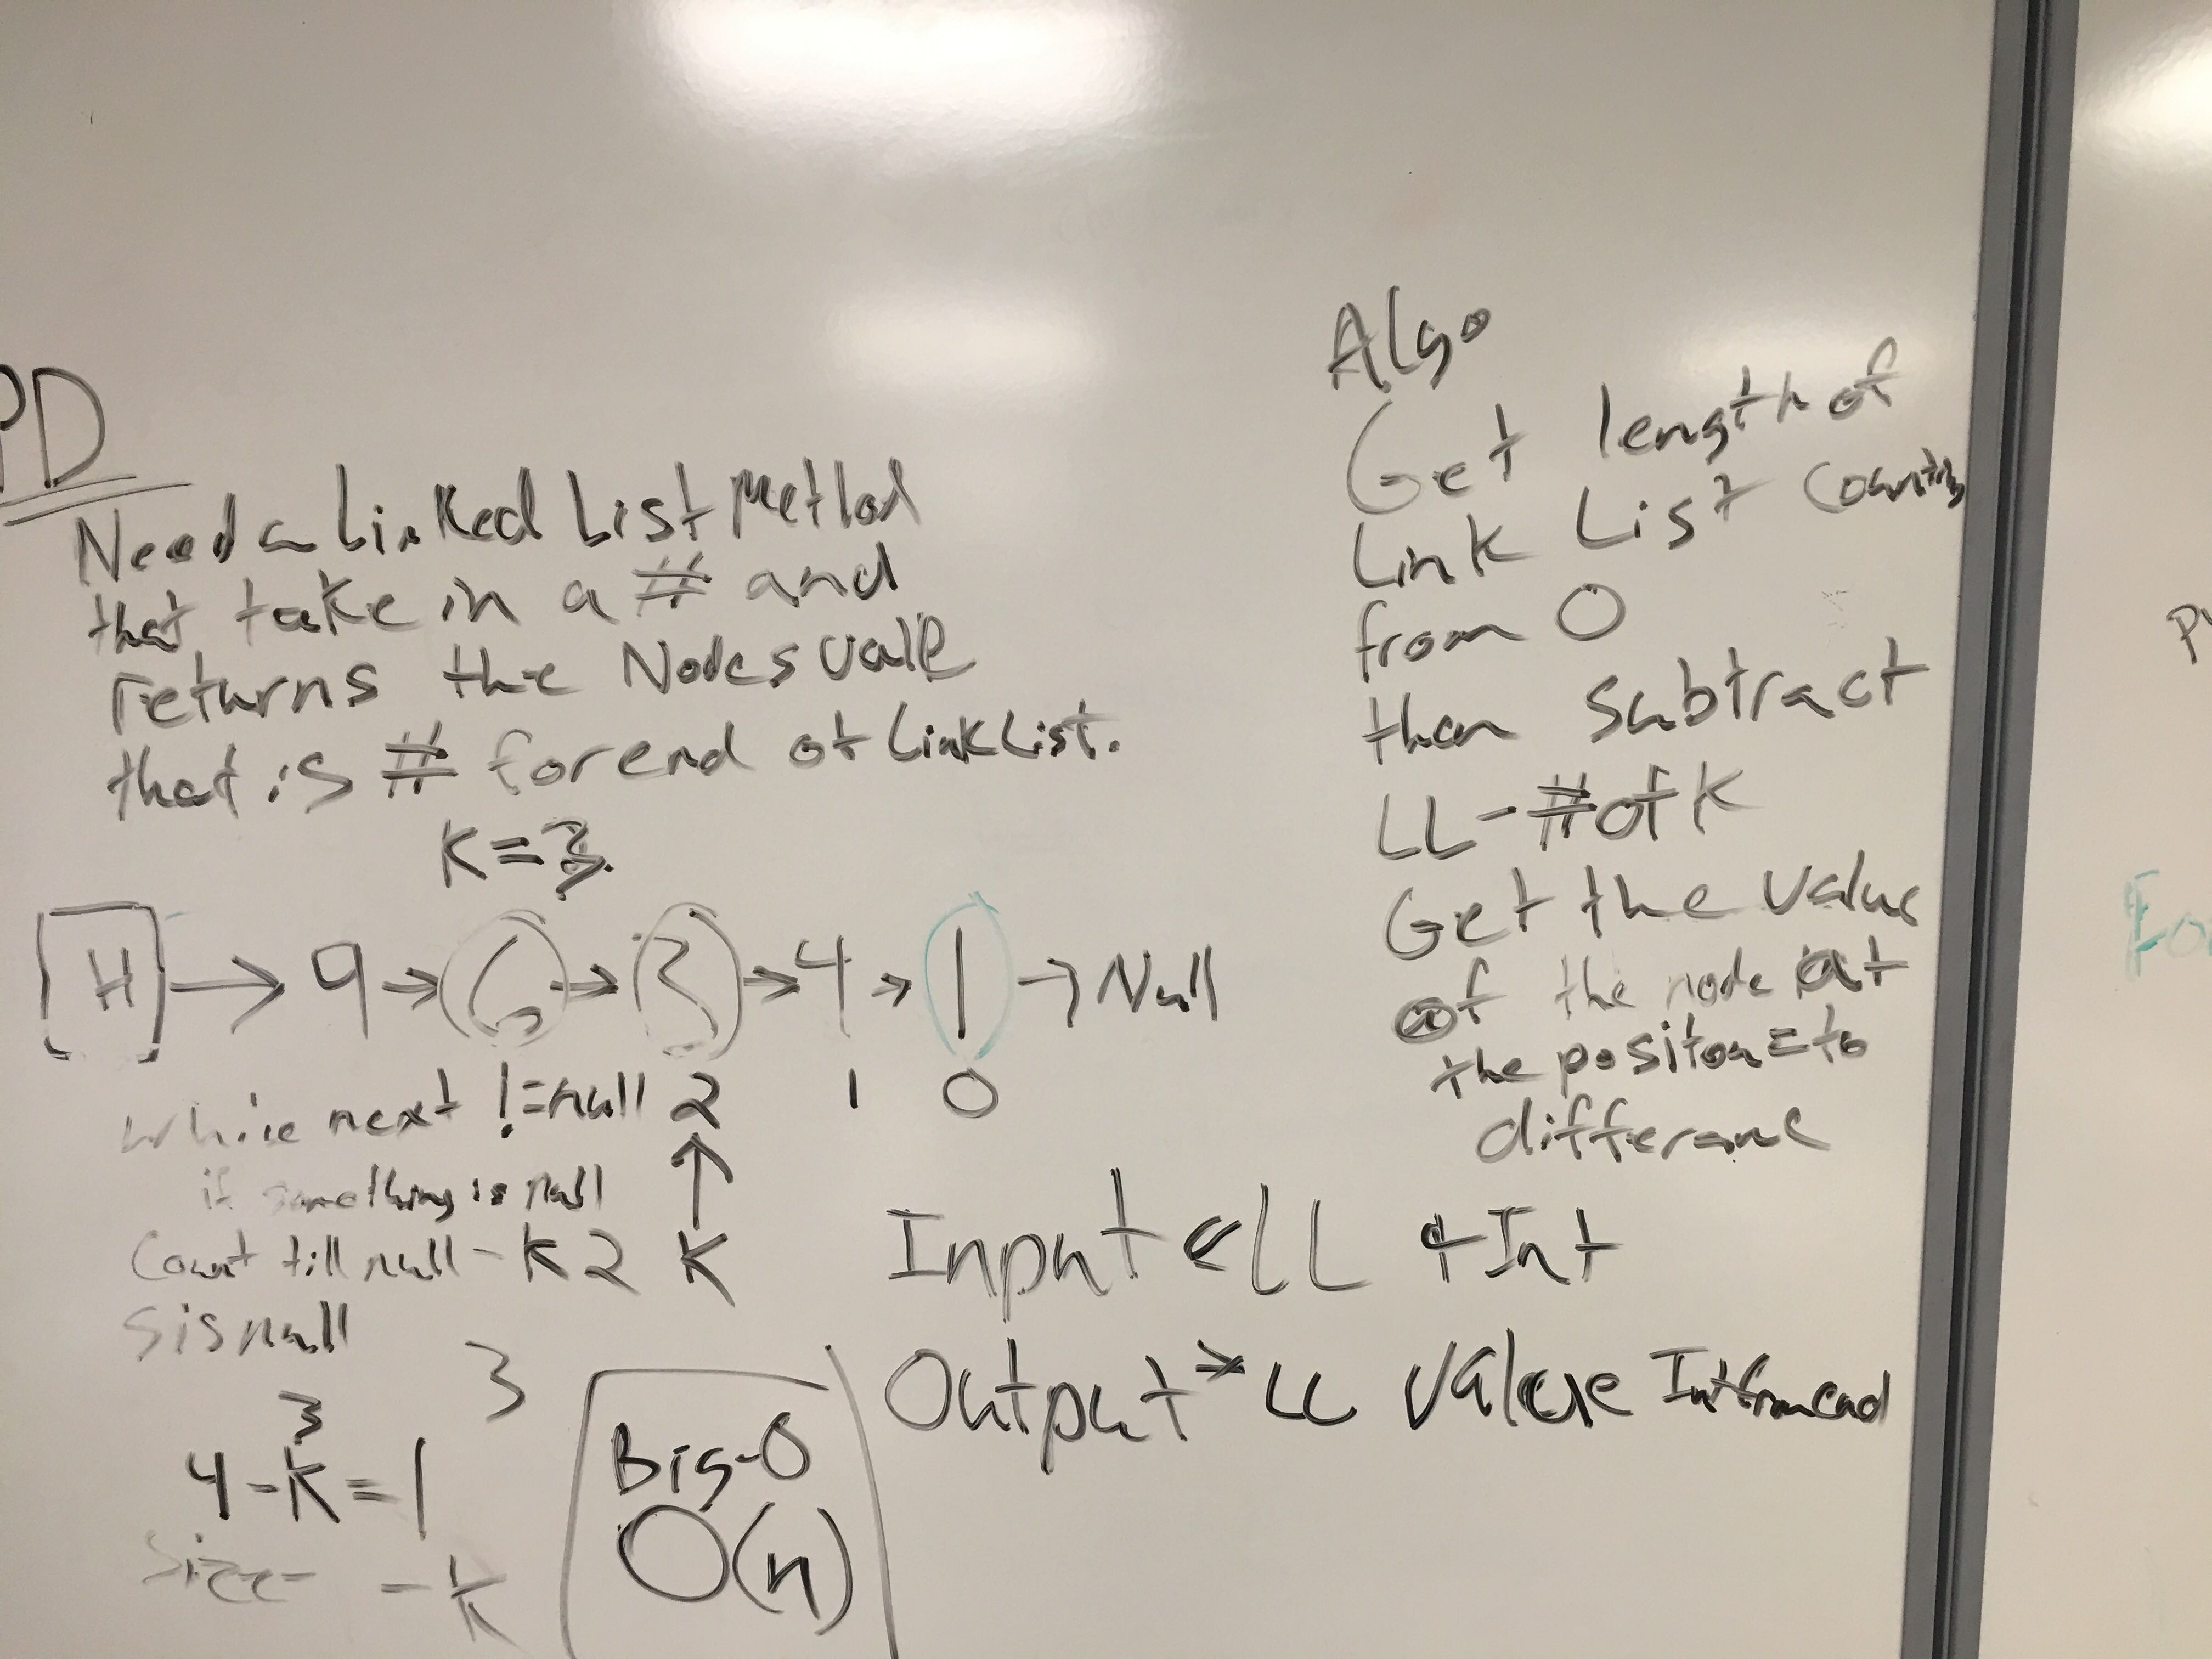 PD
Need a Linked List Method
that take in a # and
returns the Nodes vale
that is # for end of Link List.
K=3
H → 9 → 6 → 3 → 4 → 1 → Null
while next != null 2 1 0
if something is null
Count till null - K 2 K
sis null
3
3
4-K=1
Size -K
Big-O
O(n)
Algo
Get length of
Link List
from 0
then subtract
LL-# of K
Get the value
of the node at
the positon = to
differanc
Input < LL + Int
Output > LL Value Int from end